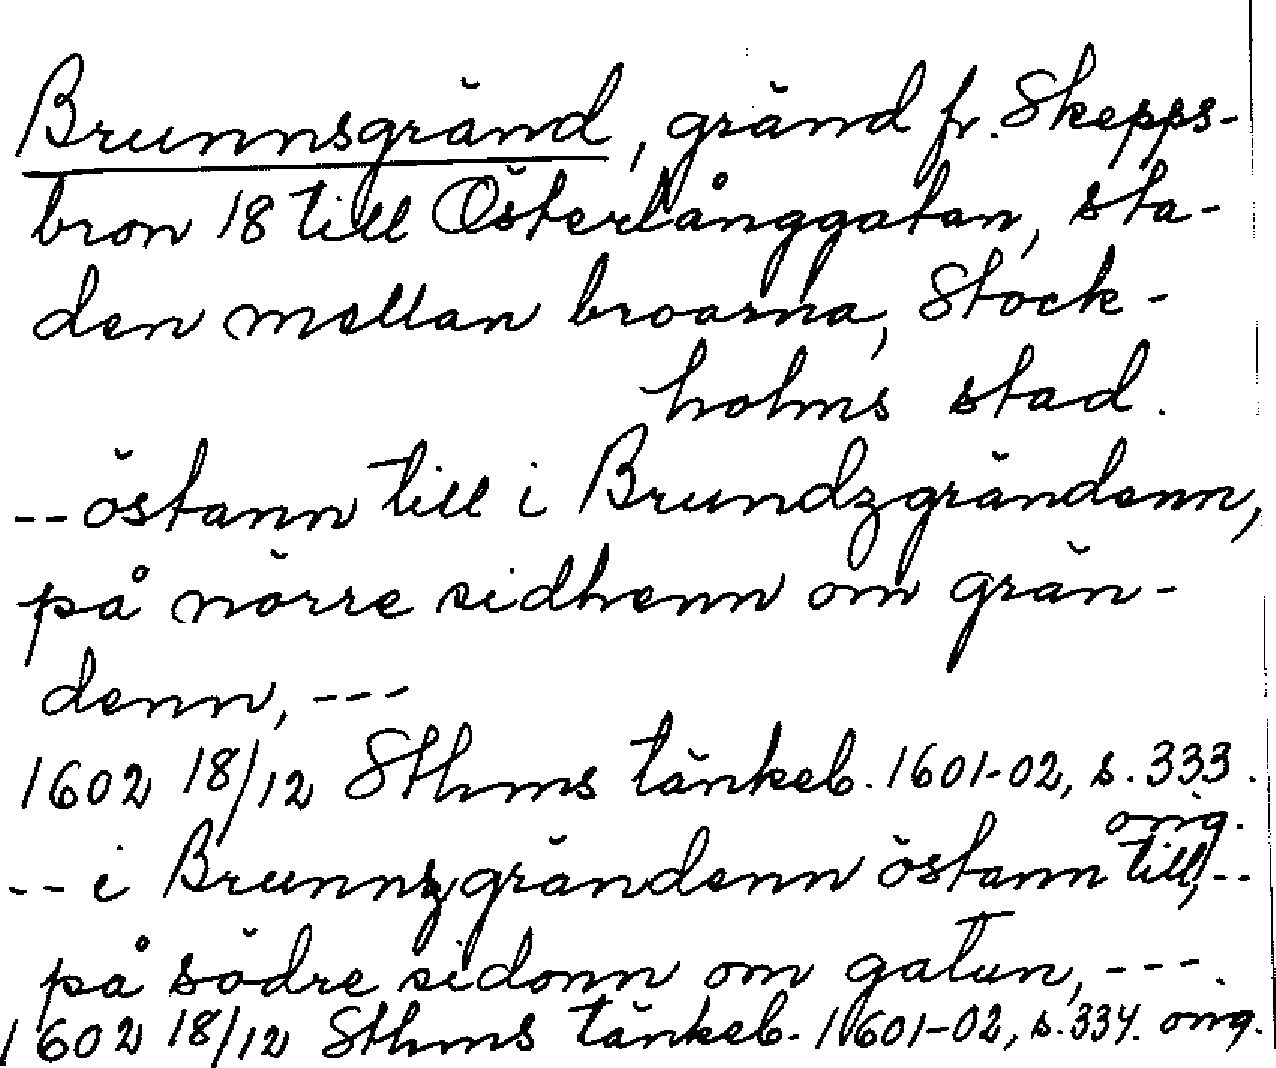 Brunnsgränd, gränd fr. Skepps-
bron 18 till Österlånggatan, sta-
den mellan broarna, Stock-
holms stad.
-- östann till i Brundzgrändenn,
på nörre sidhenn om grän-
denn, ---
1602 18/12 Sthms tänkeb. 1601-02, s. 333.
orig.
-- i Brunnzgrändenn östann till, --
på södre sidonn om gatun, ---.
1602 18/12 Sthms tänkeb. 1601-02, s. 334. orig.